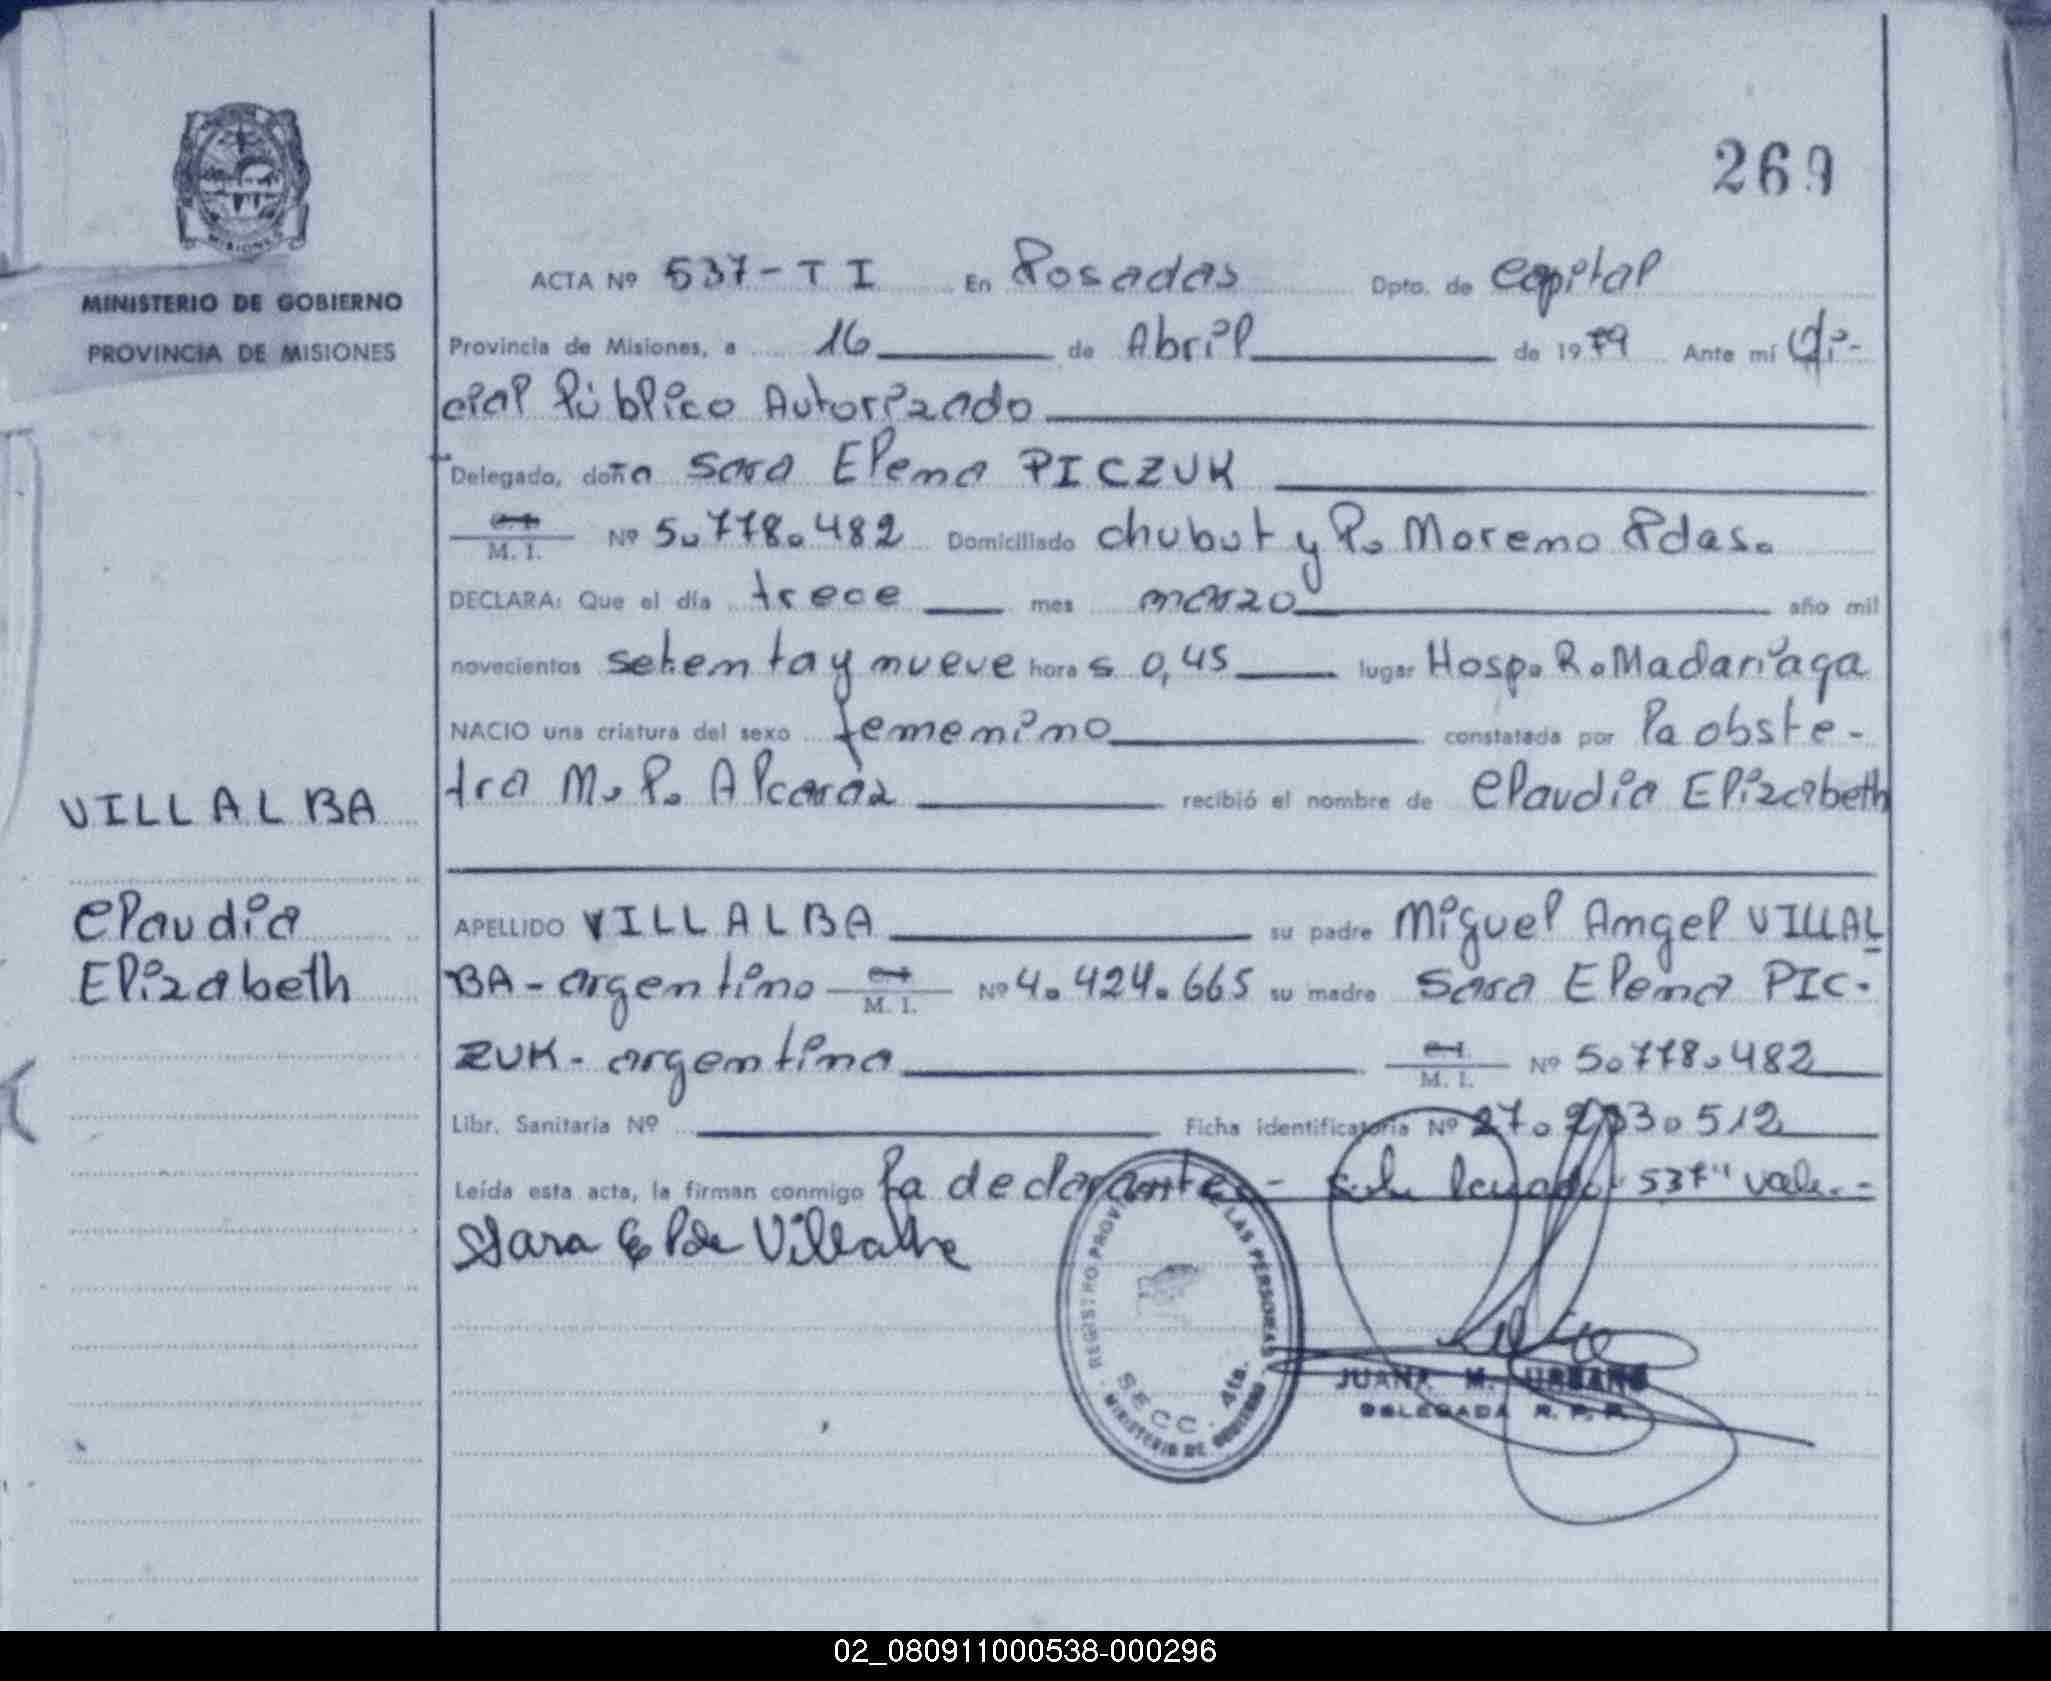 269
MISIONES
MINISTERIO DE GOBIERNO
PROVINCIA DE MISIONES
VILLALBA
Claudia
Elizabeth
ACTA Nº 537-T I En Posadas Dpto. de Capital
Provincia de Misiones, a 16 de Abril de 1979 Ante mí Ofi-
cial Público Autorizado
Delegado, doña Sara Elena PICZUK
C.I. M. I. Nº 5.778.482 Domiciliado Chubut y P. Moreno Pdas.
DECLARA: Que el día trece mes marzo año mil
novecientos setenta y nueve hora s 0,45 lugar Hosp. R. Madariaga
NACIO una criatura del sexo femenino constatada por la obste-
tra M. P. Alcaráz recibió el nombre de Claudia Elizabeth
APELLIDO VILLALBA su padre Miguel Angel VILLAL
BA - argentino C.I. M. I. Nº 4.424.665 su madre Sara Elena PIC-
ZUK - argentina C.I. M. I. Nº 5.778.482
Libr. Sanitaria Nº Ficha identificatoria Nº 27.233.512
Leída esta acta, la firman conmigo la declarante.- 537" vale.-
Sara E P de Villalba
REGISTRO PROVINCIAL DE LAS PERSONAS
SECC. 4ta.
MINISTERIO DE GOBIERNO
JUANA M. URBANO
DELEGADA R. P. P.
02_080911000538-000296